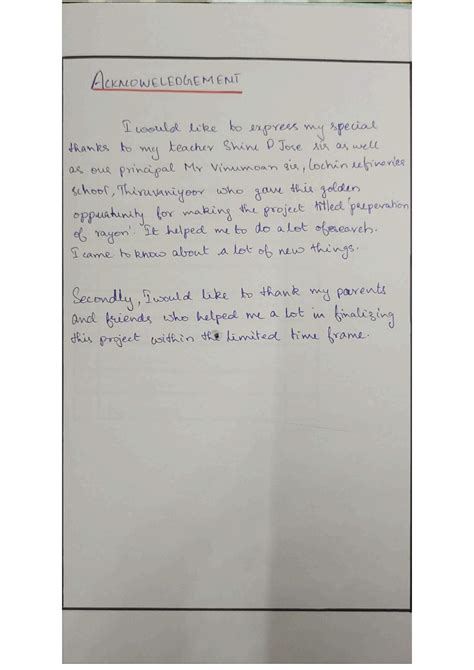 ACKNOWELEDGEMENT
I would like to express my special
thanks to my teacher Shine P Jose sir as well
as our principal Mr Vinumoan sir, Cochin refineries
school, Thiruvaniyoor who gave this golden
oppurtunity for making the project titled 'preperation
of rayon'. It helped me to do a lot of research.
I came to know about a lot of new things.
Secondly, I would like to thank my parents
and friends who helped me a lot in finalizing
this project within the limited time frame.